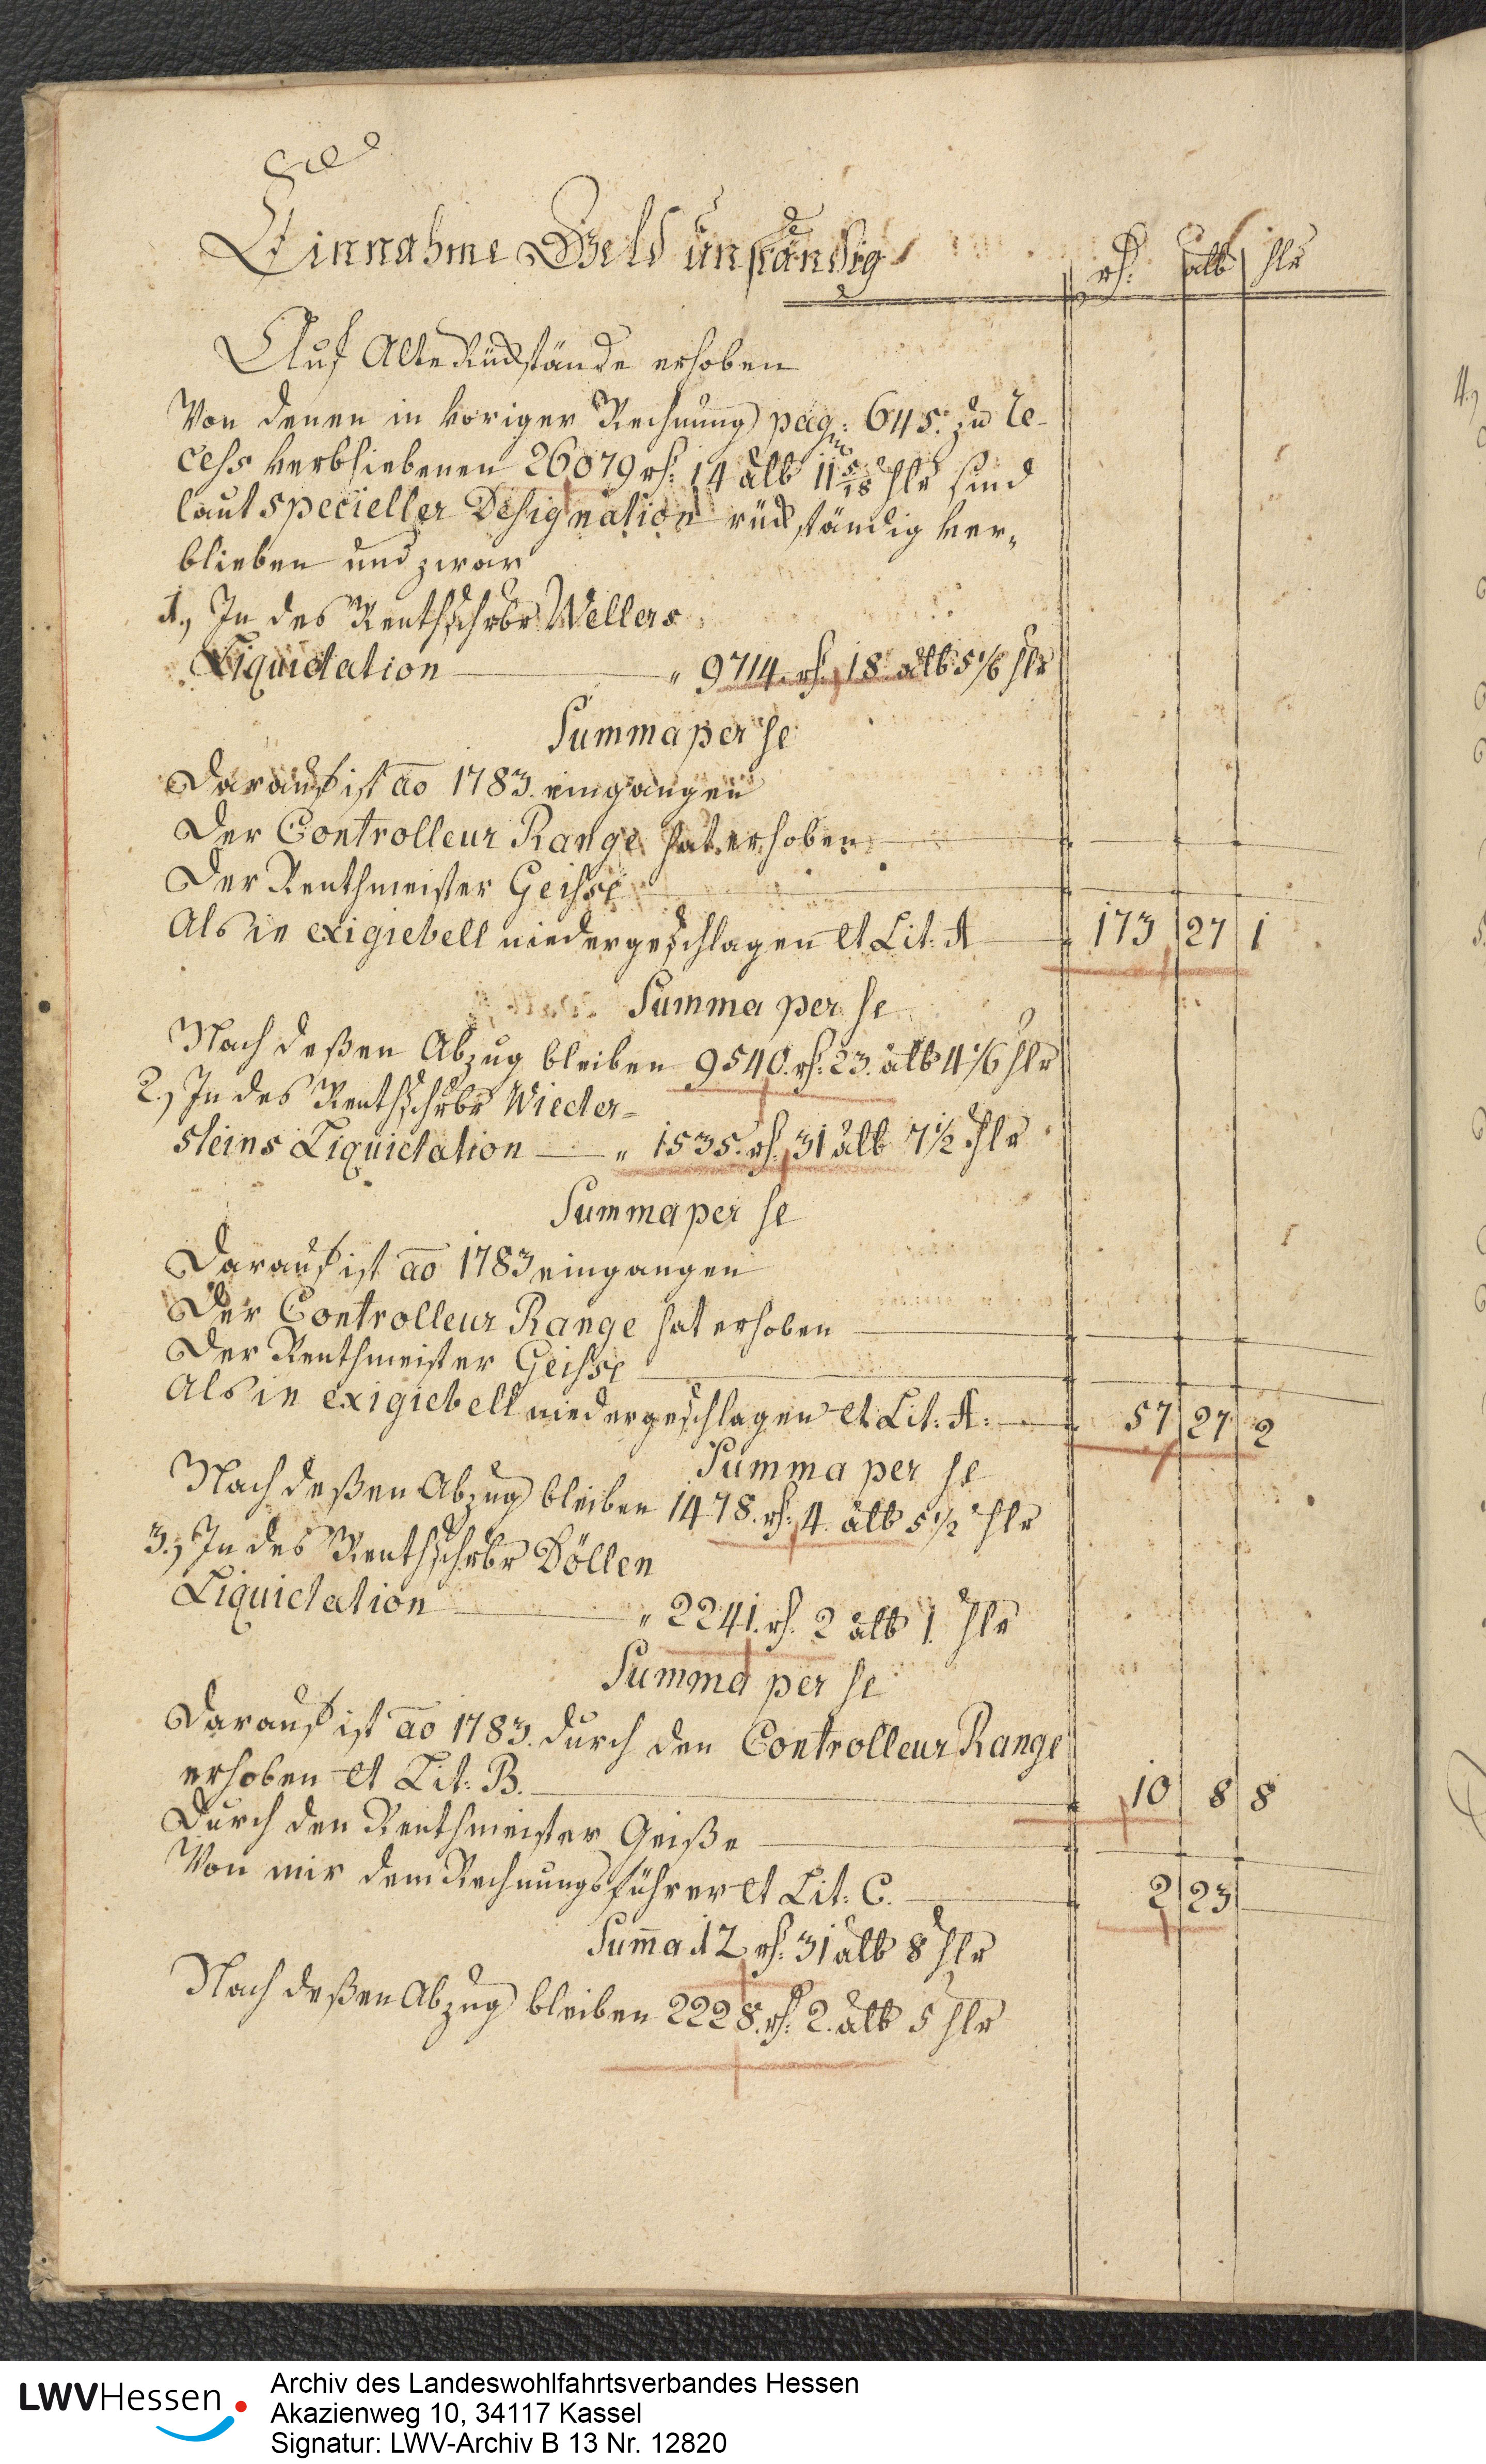 Einnahme Geld unständig
rh: alb hlr
Auf Alte Rückstände erhoben
Von denen in voriger Rechnung pag: 645. zu Re-
cess verbliebenen 26079 rh: 14 alb 11 5/18 hlr sind
laut specieller Designation rückständig ver-
blieben und zwar
1., In des Renthschrbr Wellers
Liquidation " 9714. rh: 18. alb 5 1/6 hlr
Summa per se
Darauf ist ao 1783. eingangen
Der Controlleur Range hat erhoben
Der Renthmeister Geisse
Als in exigiebell niedergeschlagen et Lit: A 173 27 1
Summa per se
Nach deßen Abzug bleiben 9540. rh: 23. alb 4 1/6 hlr
2., In des Renthschrbr Wieder-
steins Liquidation " 1535. rh: 31 alb 7 1/2 hlr
Summa per se
Darauf ist ao 1783 eingangen
Der Controlleur Range hat erhoben
Der Renthmeister Geisse
Als in exigiebell niedergeschlagen et Lit: A: 57 27 2
Summa per se
Nach deßen Abzug bleiben 1478. rh: 4. alb 5 1/2 hlr
3., In des Renthschrbr Döllen
Liquidation " 2241. rh: 2 alb 1. hlr
Summa per se
Darauf ist ao 1783. durch den Controlleur Range
erhoben et Lit: B. 10 8 8
Durch den Renthmeister Geiße
Von mir dem Rechnungsführer et Lit: C. 2 23
Suma 12 rh: 31 alb 8 hlr
Nach deßen Abzug bleiben 2228. rh: 2. alb 5 hlr
LWVHessen
Archiv des Landeswohlfahrtsverbandes Hessen
Akazienweg 10, 34117 Kassel
Signatur: LWV-Archiv B 13 Nr. 12820